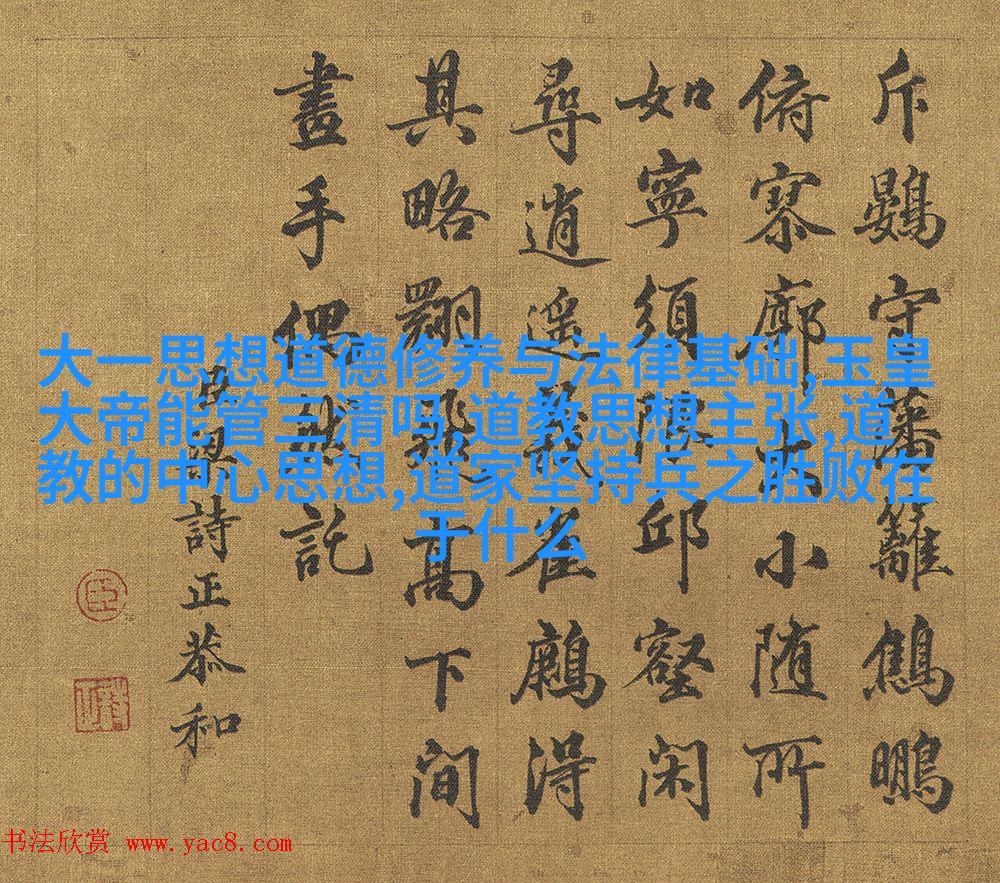 斥鷃守藩籬鷦鵬
俯寥廓大小随所
如寧須限邱壑閑
尋逍遥義崔得
其略翱飛高下間
畫手偶然託
臣梁詩正恭和
臣
大一思想道德修养与法律基础,玉皇
大帝能管三清吗,道教思想主张,道
教的中心思想,道家坚持兵之胜败在
于什么
书法欣赏 www.yac8.com